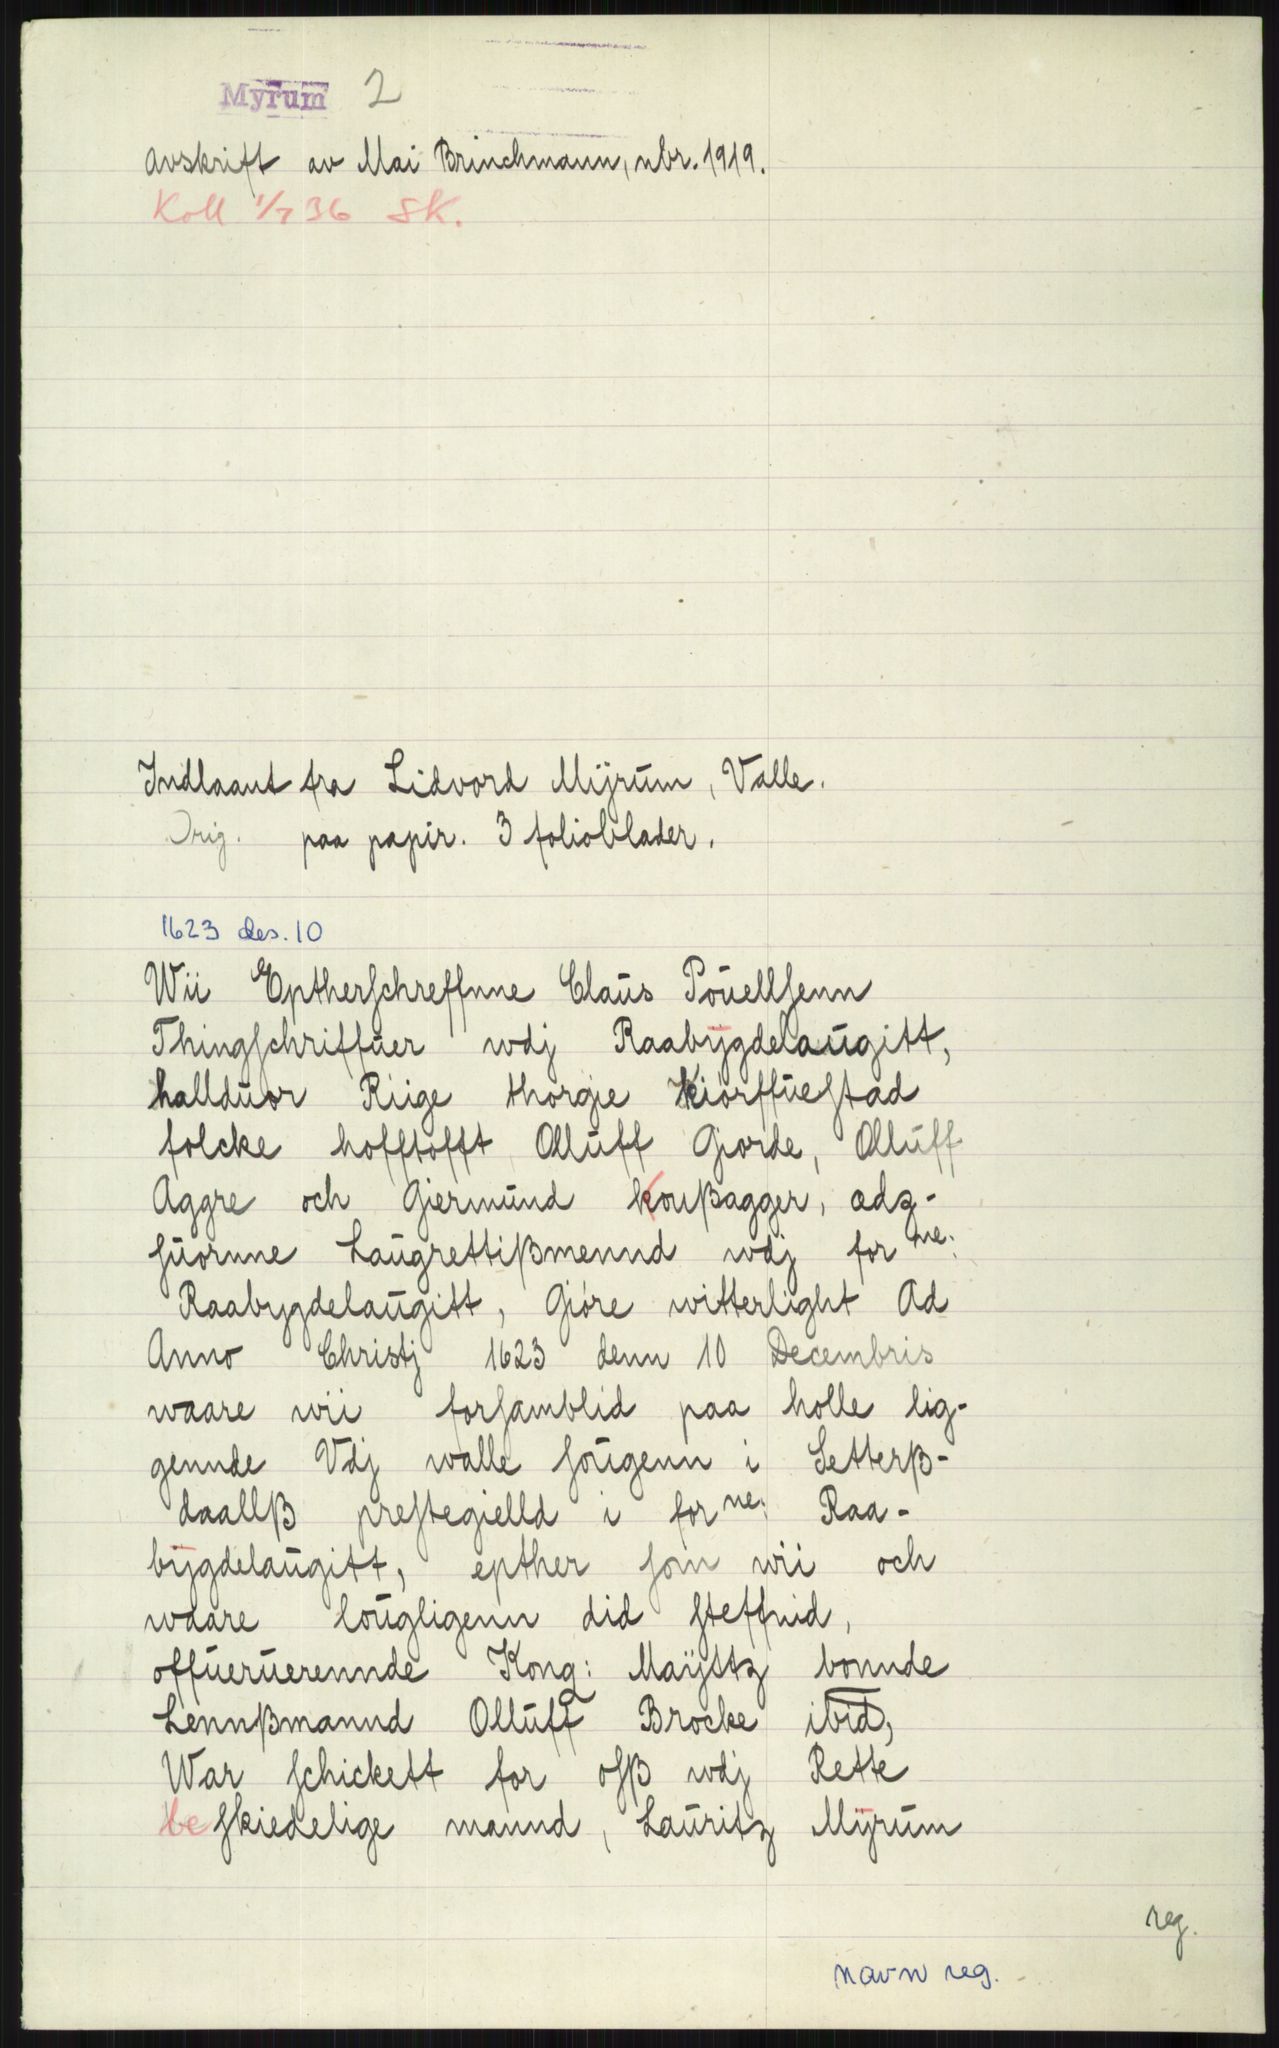 Myrum 2
Avskrift av Mai Brinchmann, nbr. 1919.
Koll 1/7 36 SK.
Indlaant fra Lidvord Mÿrum, Valle.
Orig. paa papir. 3 folioblader.
1623 des. 10
Wii Eptherschreffnne Claus Pouellsenn
Thingschriffuer wdj Raabÿgdelaugitt,
hallduor Riige thorgie Kiorffuestad
folcke hofftofft Olluff Giorde, Olluff
Aggre och Giermund koußagger, ædz-
suornne Laugrettißmennd wdj for ne:
Raabygdelaugitt, Gióre witterlight Ad
Anno Christj 1623 denn 10 Decembris
waare wii forsamblid paa holle lig-
gennde Vdj walle sougenn i Setterß-
daallß prestegielld i for ne: Raa-
bÿgdelaugitt, epther som wii och
waare lougligenn did steffnid,
offueruerennde Kong: Maÿttz bonnde
Lennßmannd Olluff Brocke ibid,
War schickett for osß wdj Rette
beskiedelige mannd, Lauritz Mÿrum
reg.
navn reg.